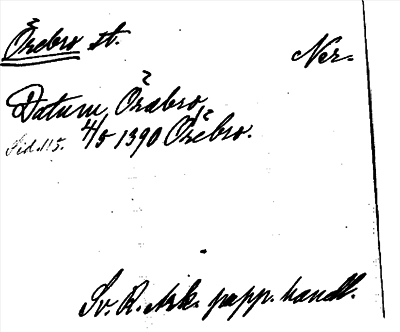 Örebro st. Ner.
Datum Örebro
Sid. 115. 4/5 1390 Örebro.
Sv. R. Ark. papp. handl.